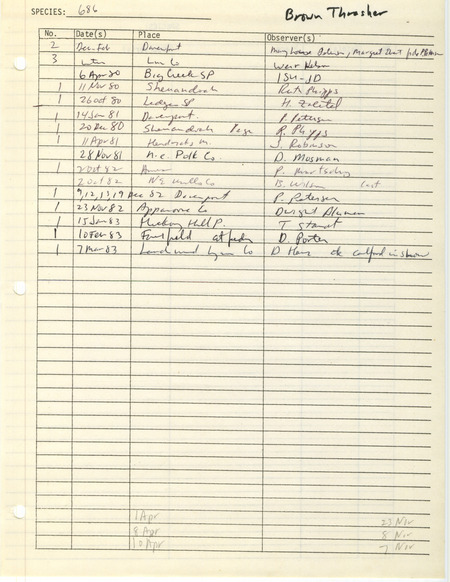 SPECIES: 686 Brown Thrasher
No. Date(s) Place Observer(s)
2 Dec-Feb Davenport Mary Louise Petersen, Margaret
3 Linn Co
6 Apr 80 Big Creek SP
1 11 Nov 80 Shenandoah Ruth Phipps
1 26 Oct 80 Ledges SP H. Zaletel
1 14 Jan 81 Davenport P. Petersen
1 20 Dec 80 Shenandoah Page R. Phipps
1 11 Apr 81 J. Robinson
28 Nov 81 n.c. Polk Co. D. Mosman
1 2 Oct 82 P. Martsching
2 Oct 82 B. Wilson last
1 9,12,13,19 Dec 82 Davenport P. Petersen
1 23 Nov 82 Appanoose Co
1 15 Jan 83 Hickory Hill P. T. Staudt
1 10 Feb 83 Fairfield at feeder D. Porter
1 7 Mar 83 Co D
1 Apr 23 Nov
8 Apr 8 Nov
10 Apr 7 Nov